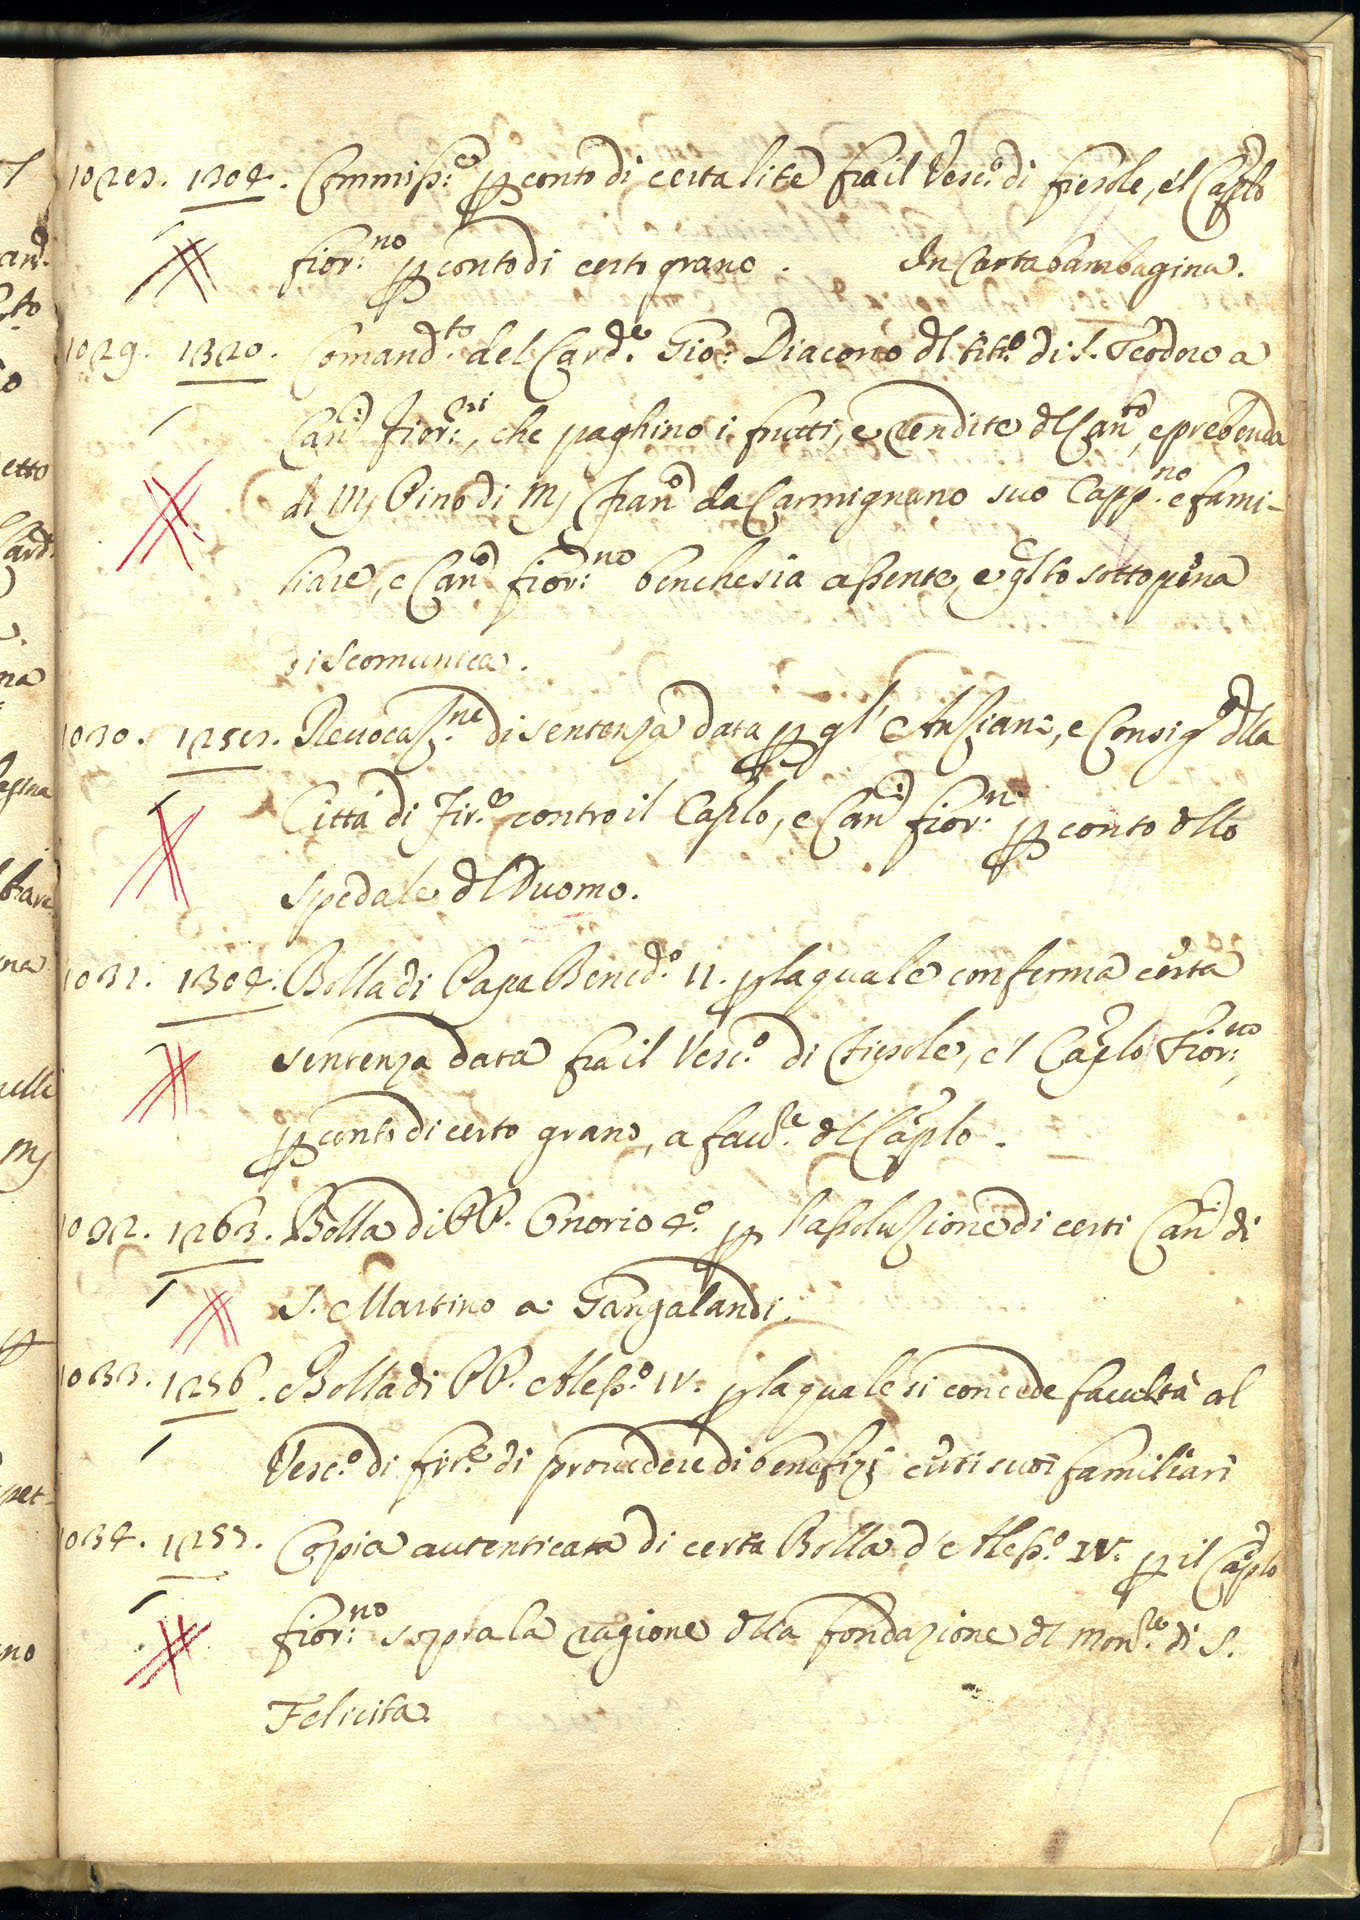 1028. 1304. Commiss:e p conto di certa lite fra il Vesc:o di Fiesole, e'l Caplo
fior:no p conto di certo grano. In Carta bambagina.
1029. 1320. Comand:to del Card:e Gio: Diacono dl tit:o di S. Teodoro a
Can:i Fior:ni, che paghino i frutti, e rendite dl Can:to, e prebenda
di Mj Pino di Mj Fran:o da Carmignano suo Capp:no e fami-
liare, e Can:o fior:no benche sia assente, e qsto sotto pena
di scomunica.
1030. 1258. Revocaz:ne di sentenza data p gl' Anziani, e Consig:o dlla
Città di Fir:e contro il Caplo, e Can:i fior:ni p conto dllo
spedale dl Duomo.
1031. 1304. Bolla di Papa Bened:o 11. p la quale conferma certa
sentenza data fra il Vesc:o di Fiesole, e'l Caplo Fior:no
p conto di certo grano, a favo:re dl Caplo.
1032. 1263. Bolla di PP. Onorio 4:o p l'assoluzione di certi Can:i di
S. Martino a Gangalandi.
1033. 1256. Bolla di PP. Aless:o IV. p la quale si concede facultà al
Vesc:o di fir:e di provedere di benefizj certi suoi familiari
1034. 1257. Copia autenticata di certa Bolla d'Aless:o IV. p il Caplo
fior:no sopra la ragione dlla fondazione dl Mon:ro di S.
Felicita.